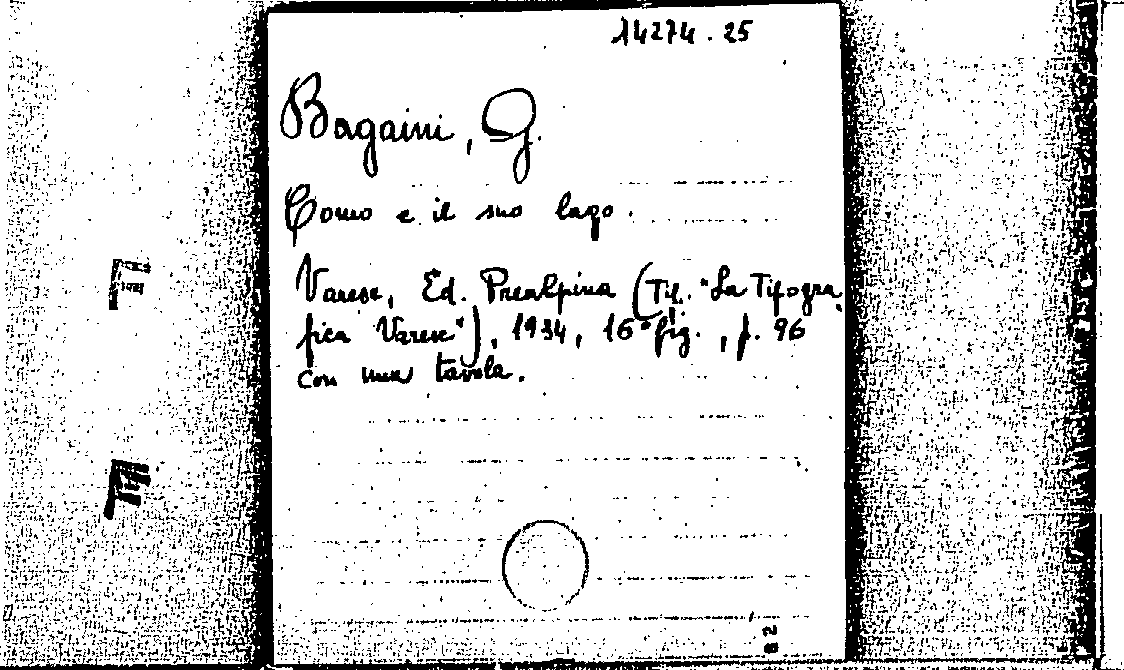 14274.25
Bagaini, G.
Como e il suo lago.
Varese, Ed. Prealpina (Tip. "La Tipogra
fica Varese"), 1934, 16° fig., p. 96
con una tavola.
82